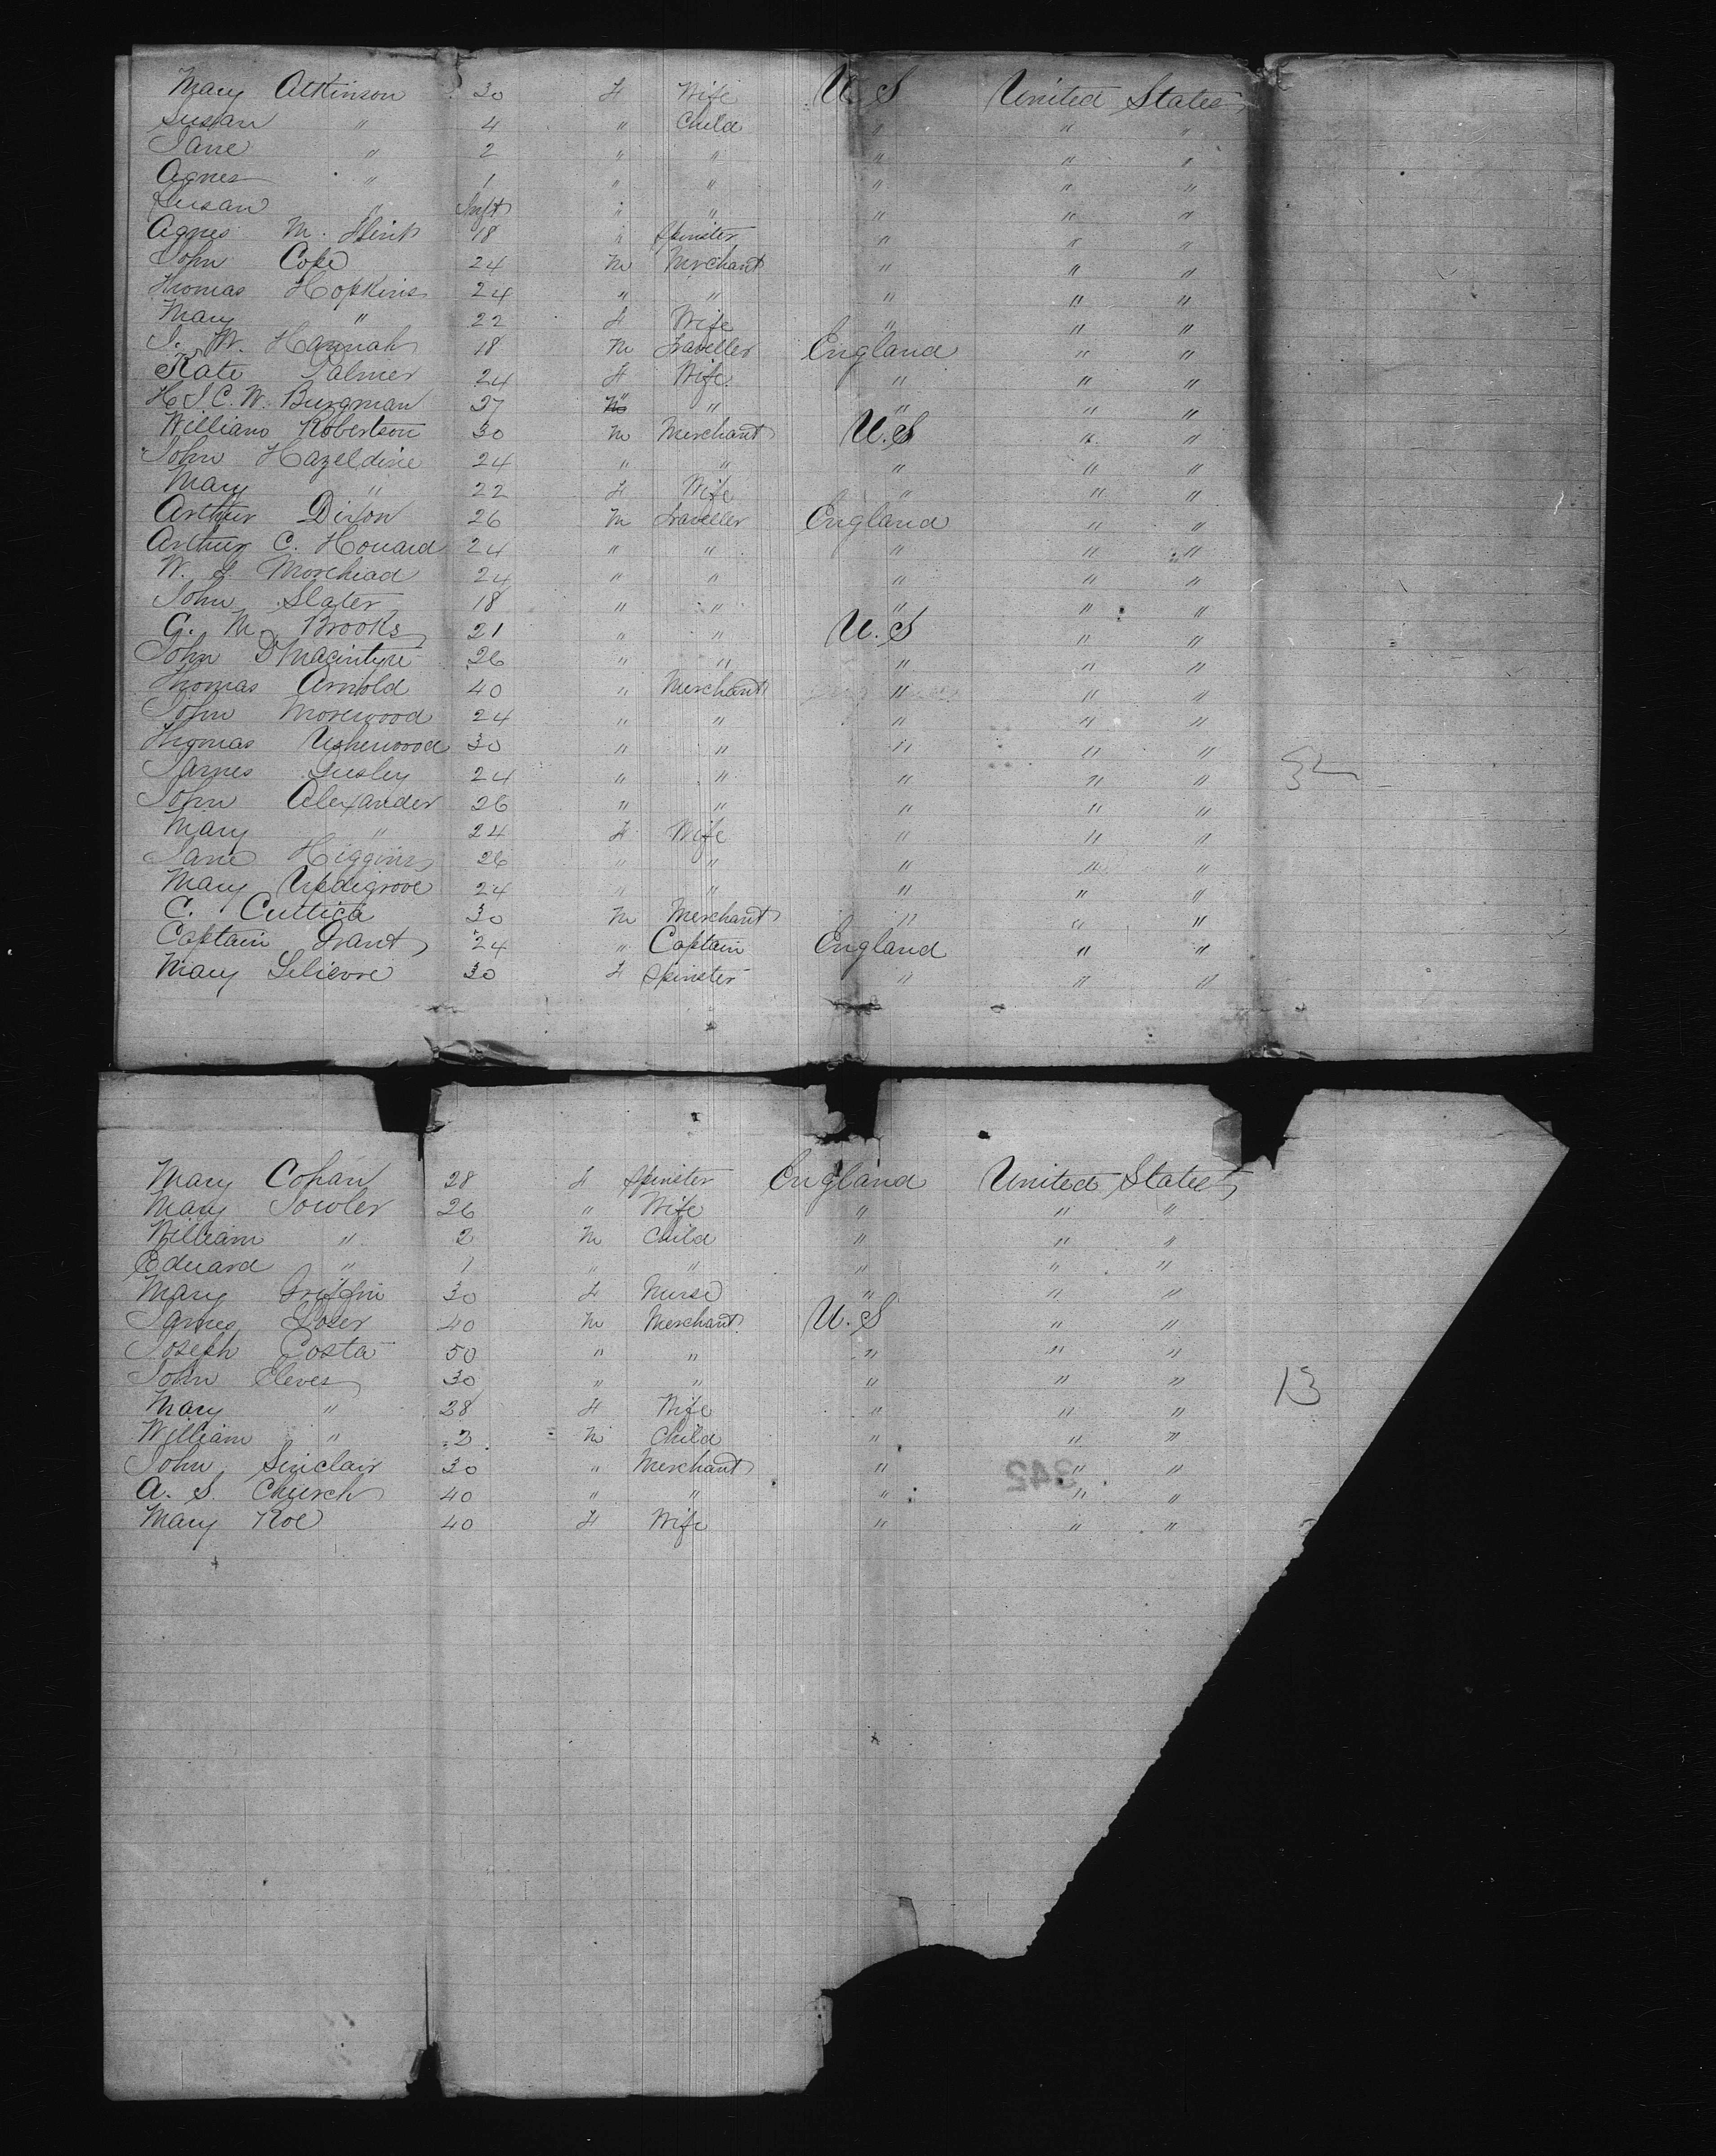 Mary Atkinson 30 F Wife U.S United States
Susan " 4 " Child " " "
Jane " 2 " " " " "
Agnes " 1 " " " " "
Susan " Inft " " " " "
Agnes M. 18 " Spinster " " "
John Cope 24 M Merchant " " "
Thomas Hopkins 24 " " " " "
Mary " 22 F Wife " " "
W. Hannah 18 M Traveller England " "
Kate Palmer 24 F Wife " " "
H J C. W. Burgman 27 " " " " "
William Robertson 30 M Merchant U.S " "
John Hazeldine 24 " " " " "
Mary " 22 F Wife " " "
Arthur Dixon 26 M Traveller England " "
Arthur C. Howard 24 " " " " "
W. Morehead 24 " " " " "
John Slater 18 " " " " "
G. M. Brooks 21 " " U.S " "
John D Macintyre 26 " " " " "
Thomas Arnold 40 " Merchant " " "
John Morewood 24 " " " " "
Thomas Usherwood 30 " " " " "
James 24 " " " " " 32
John Alexander 26 " " " " "
Mary " 24 F Wife " " "
Jane Higgins 26 " " " " "
Mary Updigrove 24 " " " " "
C. Cuttica 30 M Merchant " " "
Captain Grant 24 " Captain England " "
Mary Lelievre 30 F Spinster " " "
Mary Cohan 28 F Spinster England United States
Mary Fowler 26 " Wife " " "
William " 2 M Child " " "
Edward " 1 " " " " "
Mary Griffin 30 F Nurse " " "
James 40 M Merchant U.S " "
Joseph Costa 50 " " " " "
John Cleves 30 " " " " " 13
Mary " 28 F Wife " " "
William " 2 M Child " " "
John Sinclair 30 " Merchant " " "
342
A. S. Church 40 " " " " "
Mary Roe 40 F Wife " " "